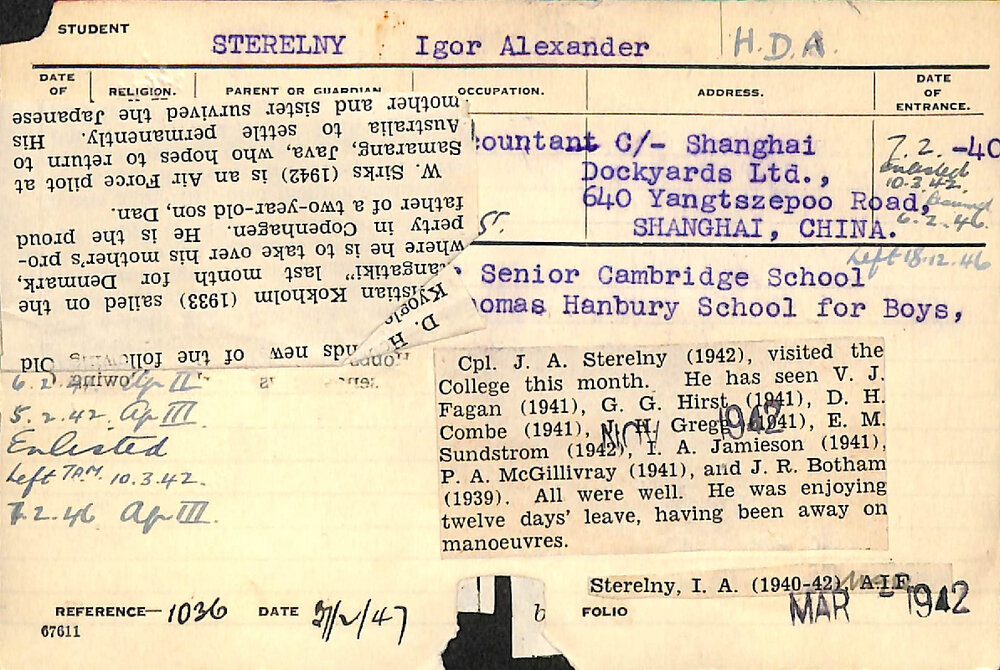 STUDENT
STERELNY Igor Alexander H.D.A.
DATE OF RELIGION. PARENT OR GUARDIAN OCCUPATION. ADDRESS. DATE OF ENTRANCE.
countant C/- Shanghai
Dockyards Ltd.,
640 Yangtszepoo Road,
SHANGHAI, CHINA.
7.2.-40
enlisted
10.3.42.
6.2.46.
Left 18.12.46
55.
Senior Cambridge School
homas Hanbury School for Boys,
Old
nds news of the following
D. H.
Kyogle
istian Kokholm (1933) sailed on the
angatiki" last month for Denmark,
where he is to take over his mother's pro-
perty in Copenhagen. He is the proud
father of a two-year-old son, Dan.
W. Sirks (1942) is an Air Force pilot at
Samarang, Java, who hopes to return to
Australia to settle permanently. His
mother and sister survived the Japanese
5.2.42. Ap III
Enlisted
Left 10.3.42.
7.2.46 Ap III.
Cpl. J. A. Sterelny (1942), visited the
College this month. He has seen V. J.
Fagan (1941), G. G. Hirst (1941), D. H.
Combe (1941), J. H. Gregg (1941), E. M.
Sundstrom (1942), I. A. Jamieson (1941),
P. A. McGillivray (1941), and J. R. Botham
(1939). All were well. He was enjoying
twelve days' leave, having been away on
manoeuvres.
NOV 1942
Sterelny, I. A. (1940-42), A.I.F.
MAR 1942
REFERENCE—1036 DATE 3/2/47 b FOLIO
67611